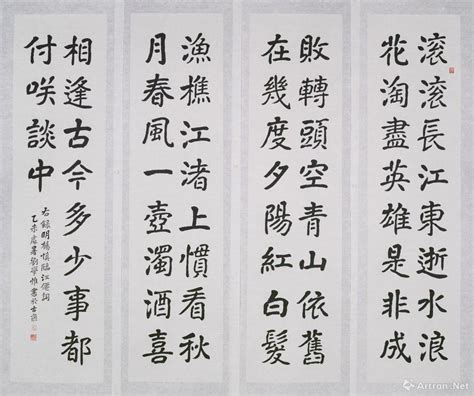 滚滚長江東逝水浪
花淘盡英雄是非成
敗轉頭空青山依舊
在幾度夕陽紅白髮
漁樵江渚上慣看秋
月春風一壺濁酒喜
相逢古今多少事都
付咲談中
右録明楊慎臨江僊詞
乙未處暑劉學惟書於古
Artron.Net